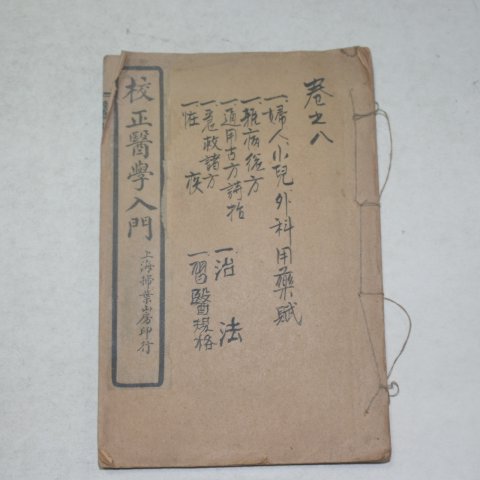 校正醫學入門
上海掃葉山房印行
卷之八
一婦人小兒外科用藥賦
一雜病從方
一通用古方詩括
一急救諸方
一怪疾
一治法
一習醫規格